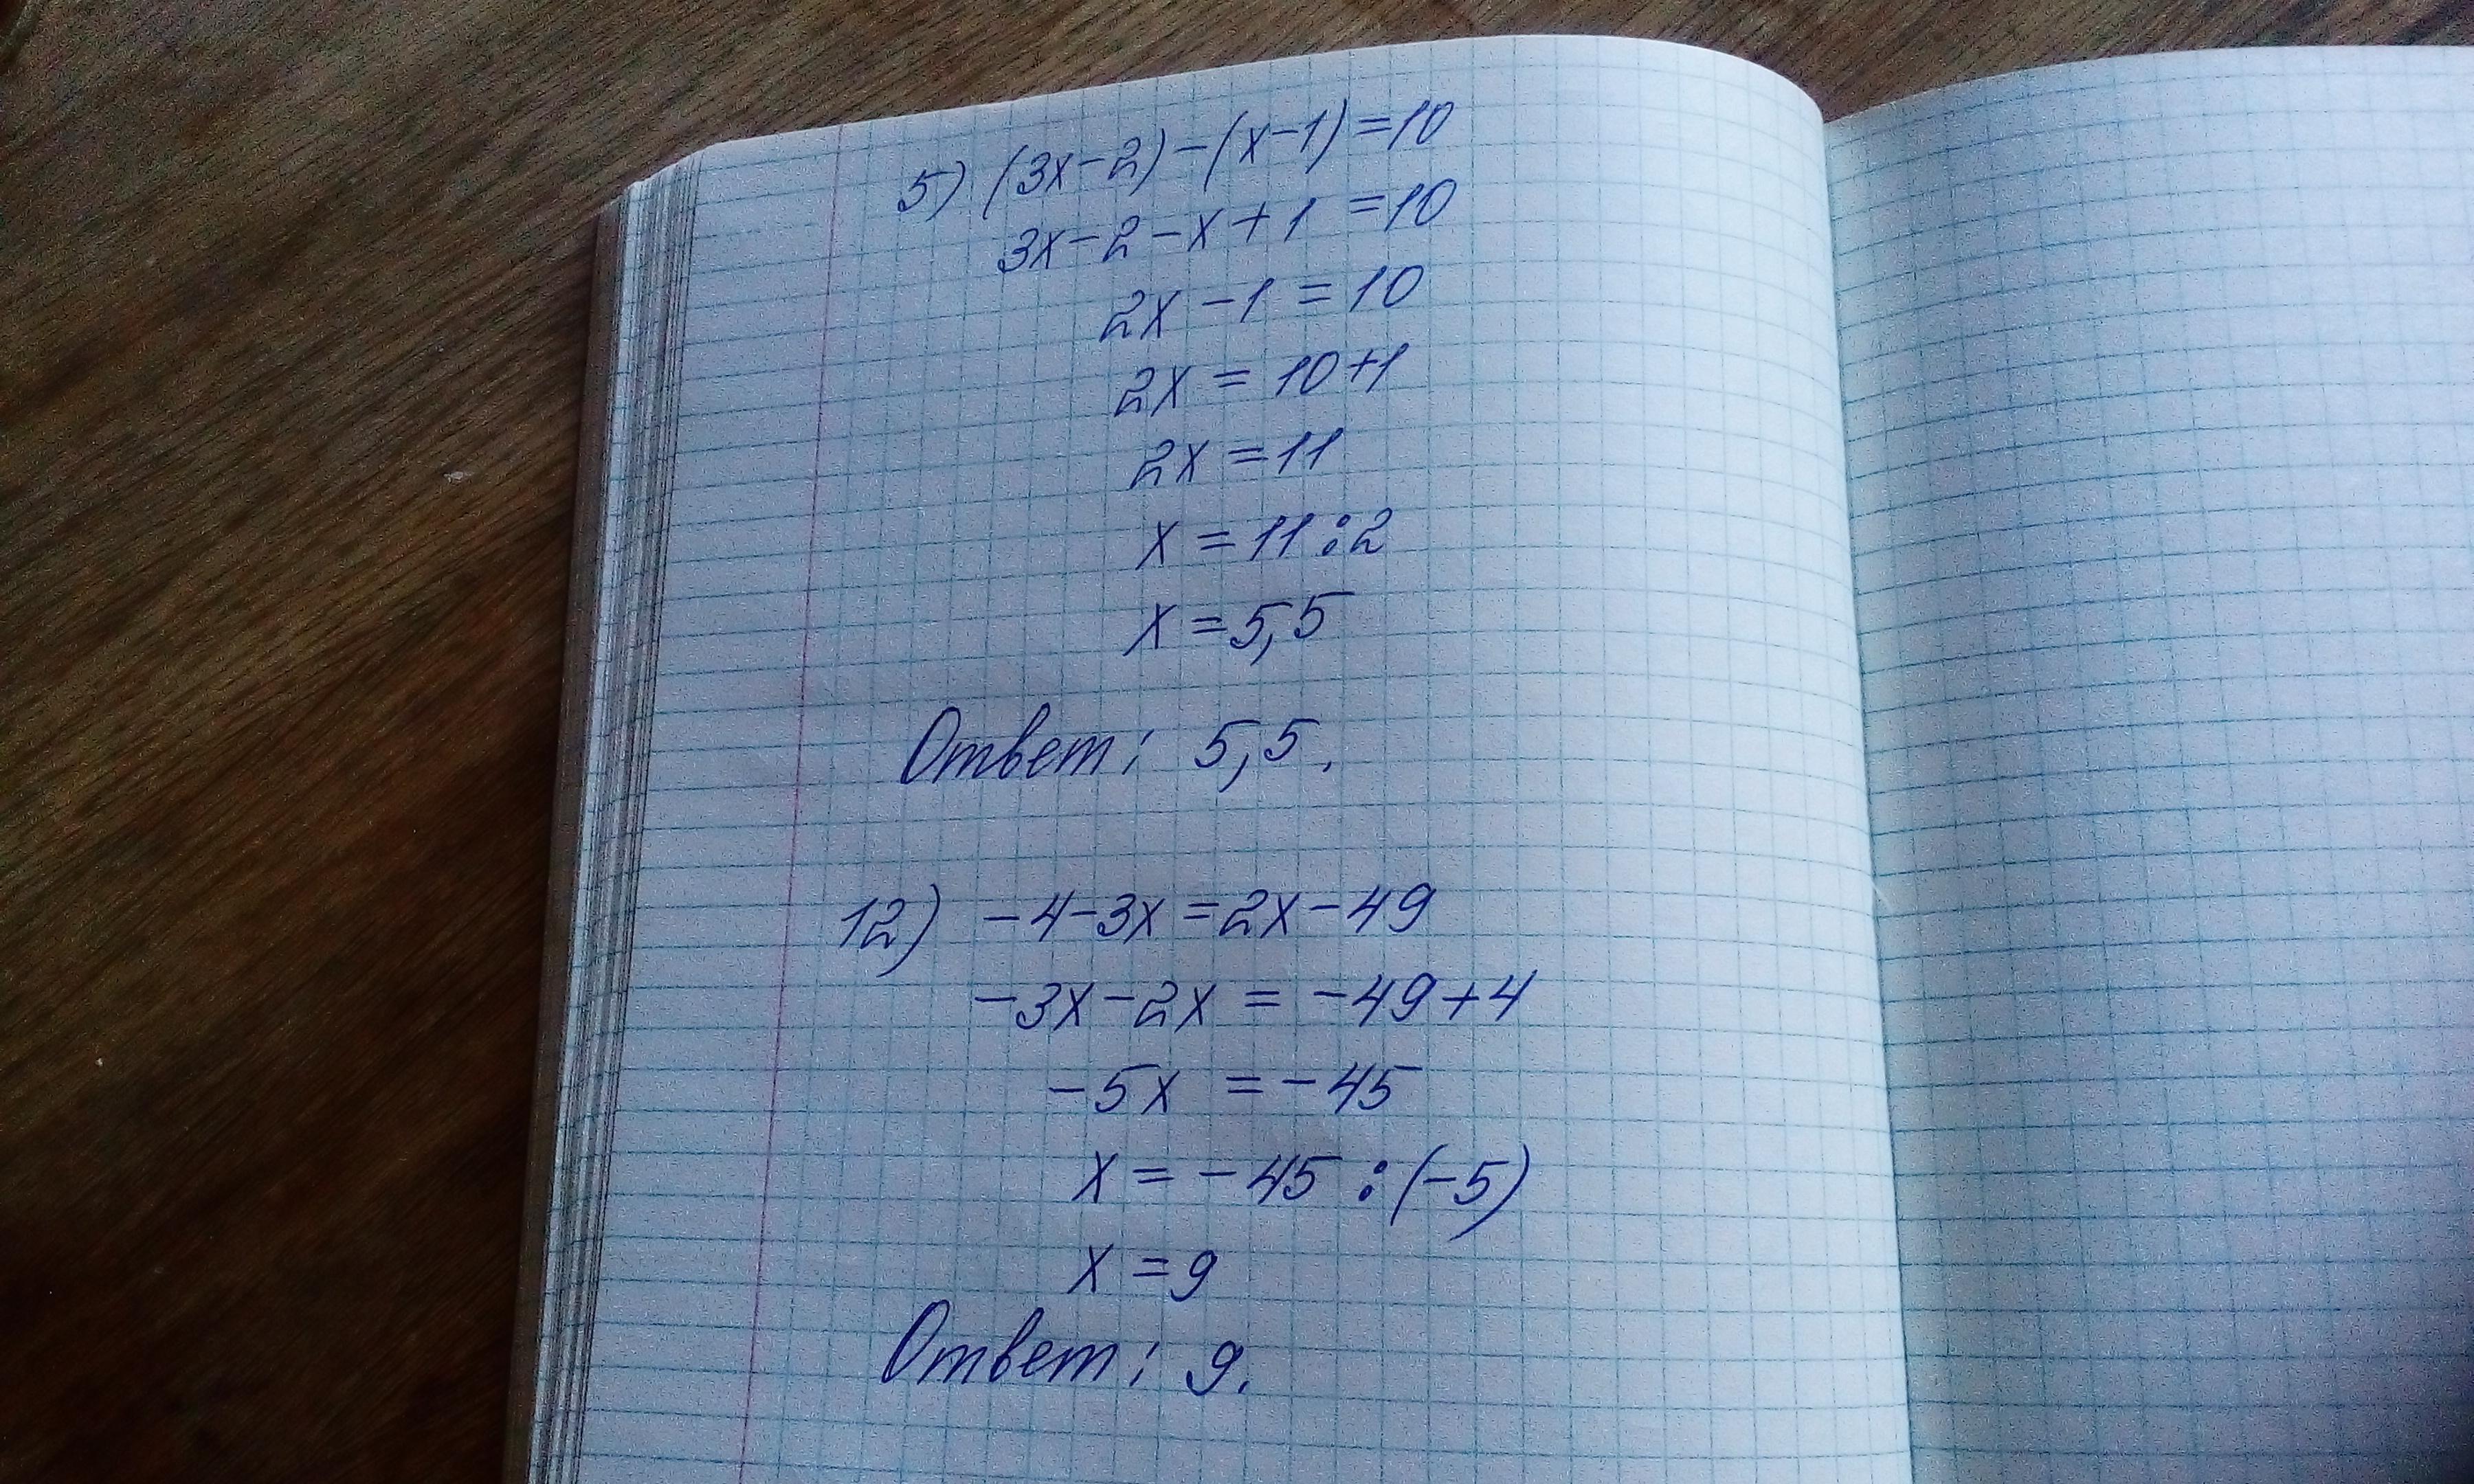 5) (3x-2)-(x-1)=10
3x-2-x+1=10
2x-1=10
2x=10+1
2x=11
x=11:2
x=5,5
Ответ: 5,5.
12) -4-3x=2x-49
-3x-2x=-49+4
-5x=-45
x=-45:(-5)
x=9
Ответ: 9.